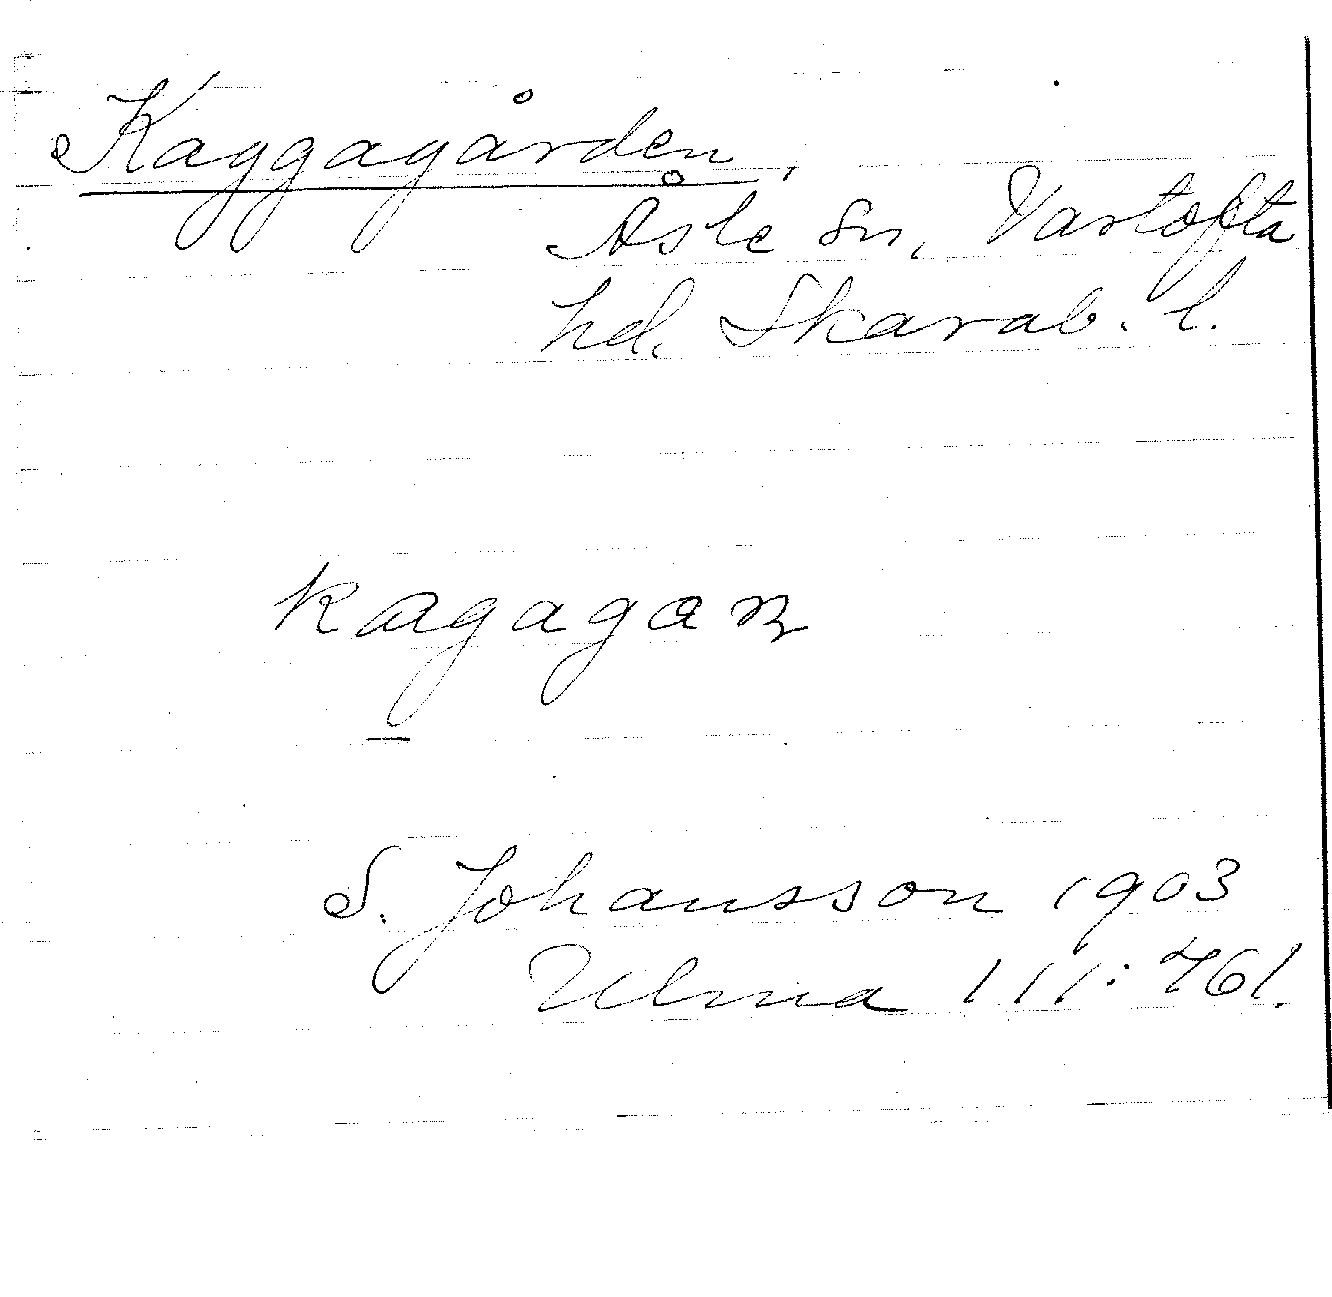 Kaggagården,
Åsle sn, Vartofta
hd. Skarab. l.
kagagaɳ
S. Johansson 1903
Ulma 111:761.